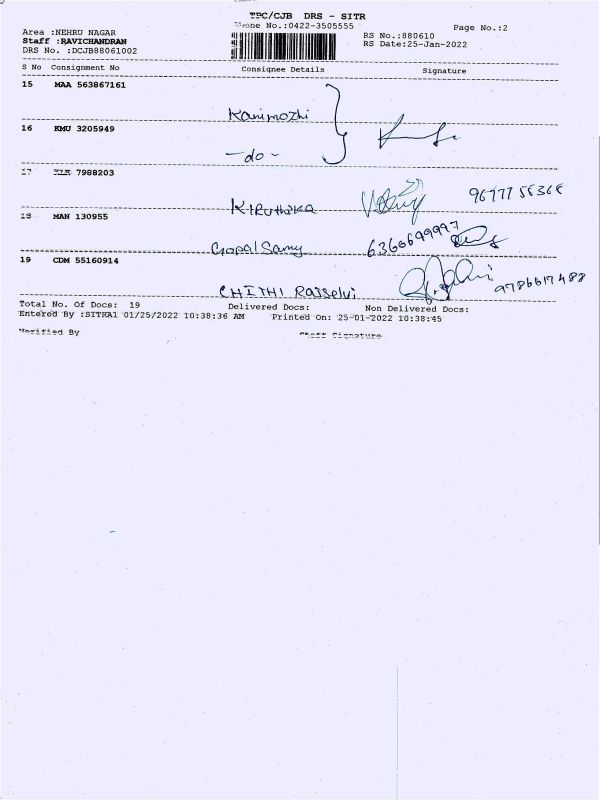 TPC/CJB DRS - SITR
Phone No.:0422-3505555
Page No.:2
Area :NEHRU NAGAR
Staff :RAVICHANDRAN
DRS No. :DCJB88061002
RS No.:880610
RS Date:25-Jan-2022
S No Consignment No Consignee Details Signature
15 MAA 563867161
Kanimozhi
16 KMU 3205949
-do-
17 7988203
KIRUthiKA
18 MAN 130955
Gopal Samy 6366699997
19 CDM 55160914
CHITHI Raiselvi 9786617488
Total No. Of Docs: 19 Delivered Docs: Non Delivered Docs:
Entered By :SITRA1 01/25/2022 10:38:36 AM Printed On: 25-01-2022 10:38:45
Verified By Staff Signature